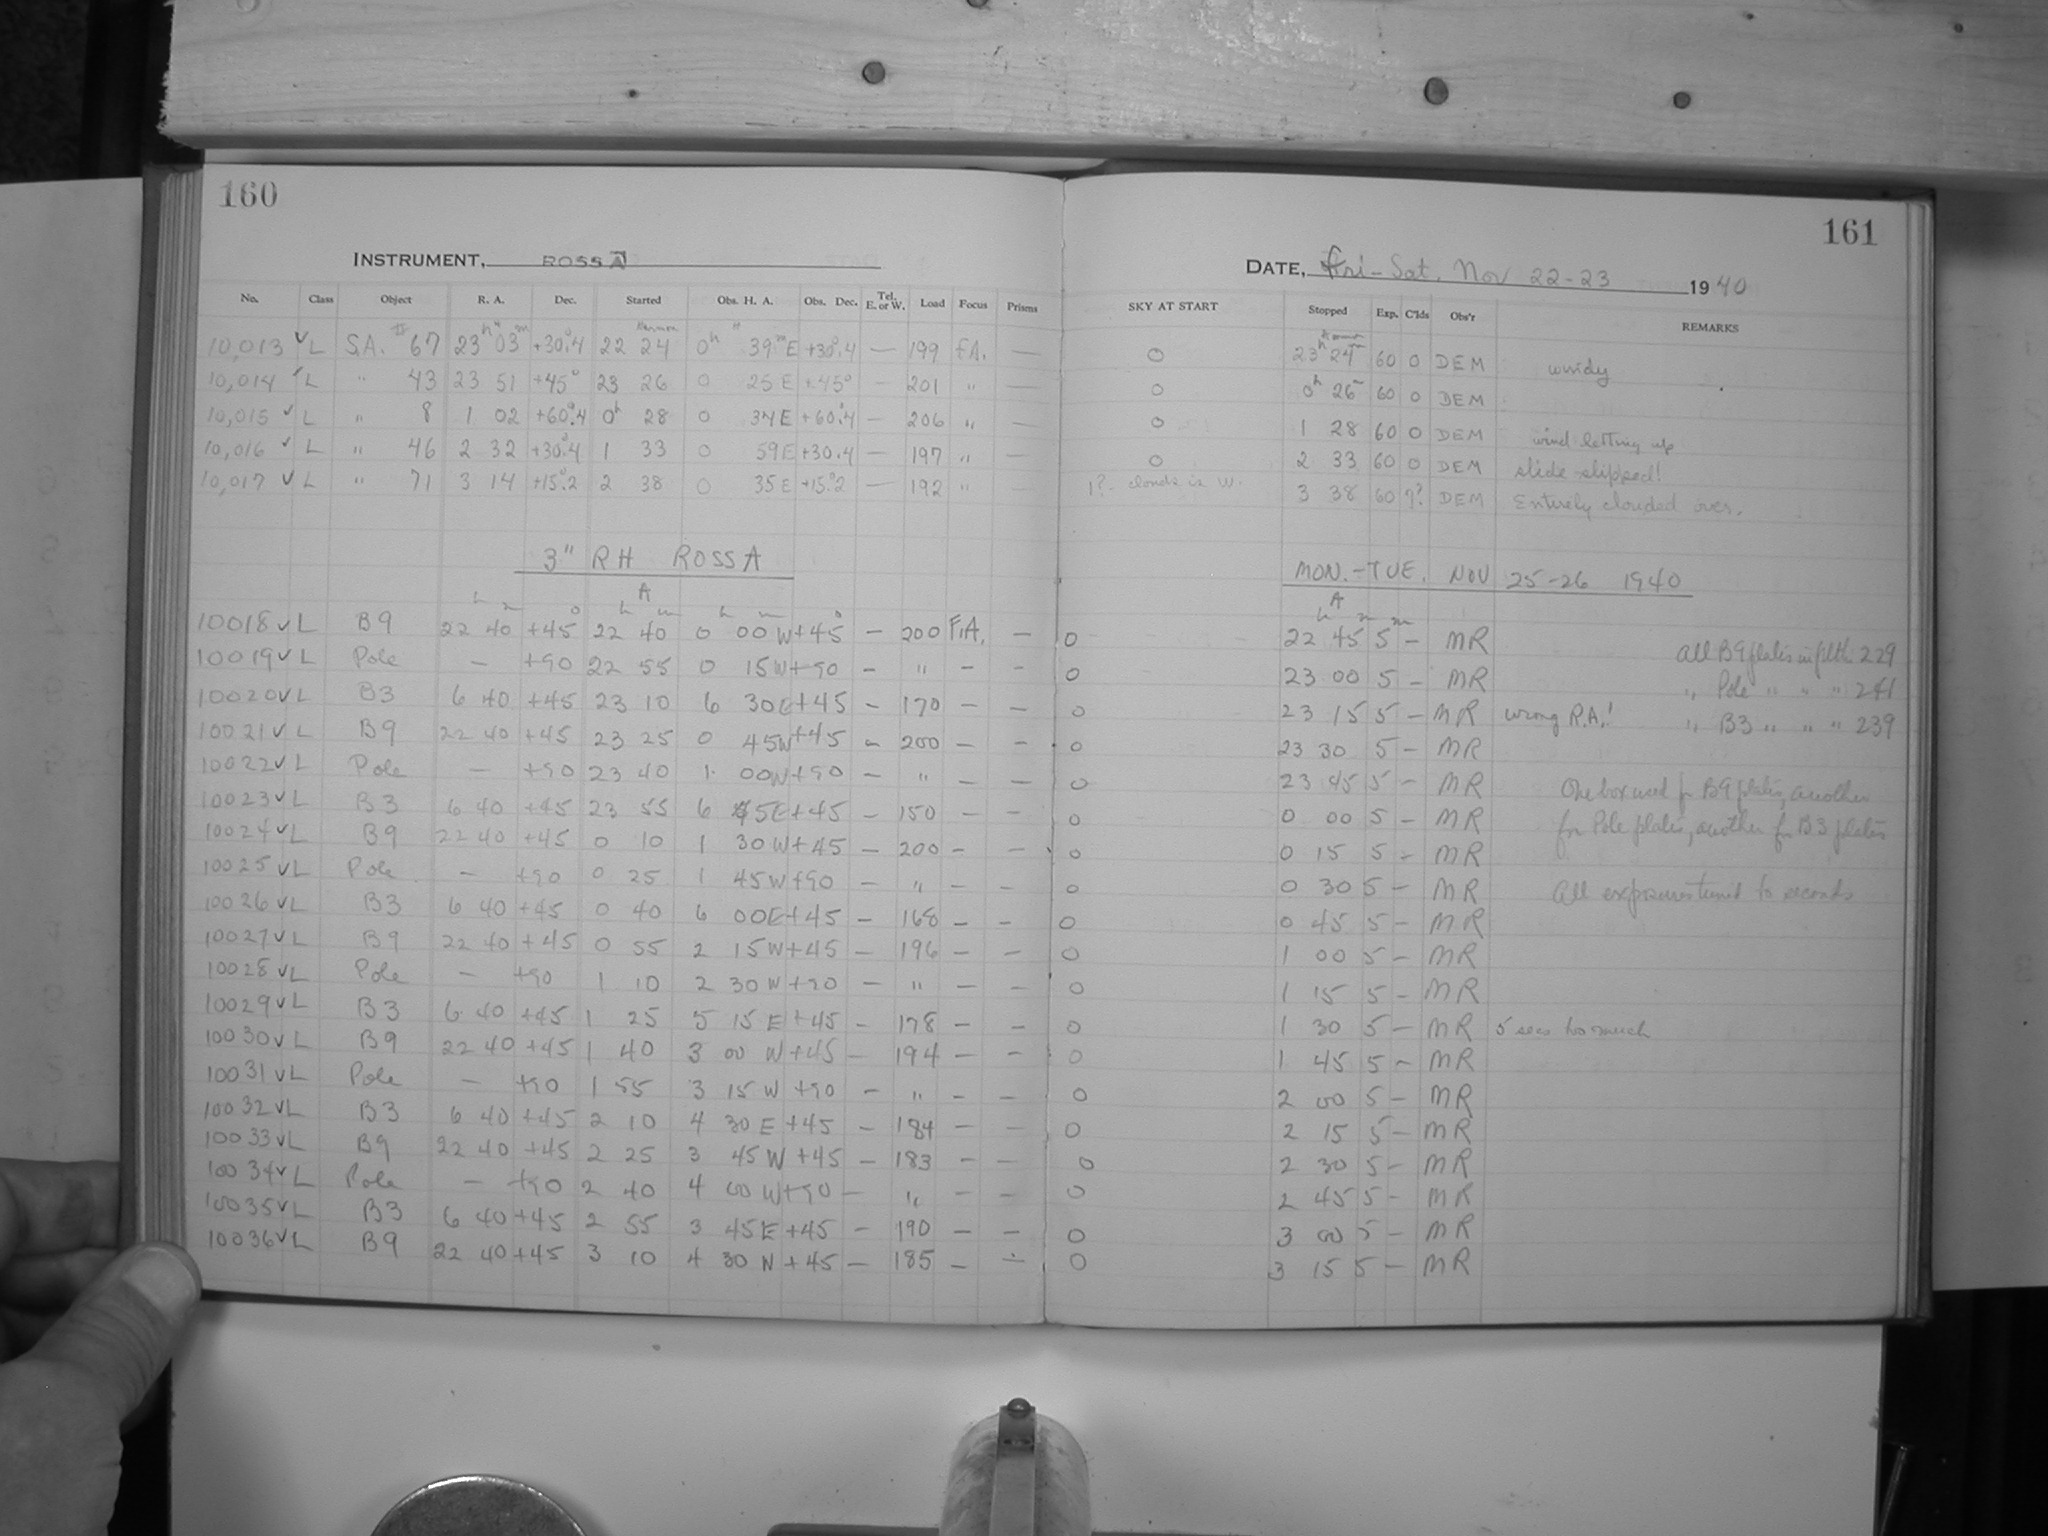 160
INSTRUMENT, ROSS A
No. Class Object R. A. Dec. Started Obs. H. A. Obs. Dec. Tel. E. or W. Load Focus Prisms
10,013 √ L S.A. # 67 23h 03m +30°.4 22 24 0h 39m E +30°.4 — 199 F.A. —
10,014 √ L " 43 23 51 +45° 23 26 0 25 E +45° — 201 " —
10,015 √ L " 8 1 02 +60°.4 0h 28 0 34 E +60°.4 — 206 " —
10,016 √ L " 46 2 32 +30°.4 1 33 0 59 E +30.4 — 197 " —
10,017 √ L " 71 3 14 +15°.2 2 38 0 35 E +15°.2 — 192 " —
3" RH ROSS A
A
h m ° h m h m °
10018 √ L B9 22 40 +45 22 40 0 00 W +45 — 200 F.A. —
10019 √ L Pole — +90 22 55 0 15 W +90 — " — —
10020 √ L B3 6 40 +45 23 10 6 30 E +45 — 170 — —
10021 √ L B9 22 40 +45 23 25 0 45 W +45 — 200 — —
10022 √ L Pole — +90 23 40 1 00 W +90 — " — —
10023 √ L B3 6 40 +45 23 55 6 45 E +45 — 150 — —
10024 √ L B9 22 40 +45 0 10 1 30 W +45 — 200 — —
10025 √ L Pole — +90 0 25 1 45 W +90 — " — —
10026 √ L B3 6 40 +45 0 40 6 00 E +45 — 168 — —
10027 √ L B9 22 40 +45 0 55 2 15 W +45 — 196 — —
10028 √ L Pole — +90 1 10 2 30 W +90 — " — —
10029 √ L B3 6 40 +45 1 25 5 15 E +45 — 178 — —
10030 √ L B9 22 40 +45 1 40 3 00 W +45 — 194 — —
10031 √ L Pole — +90 1 55 3 15 W +90 — " — —
10032 √ L B3 6 40 +45 2 10 4 30 E +45 — 184 — —
10033 √ L B9 22 40 +45 2 25 3 45 W +45 — 183 — —
10034 √ L Pole — +90 2 40 4 00 W +90 — " — —
10035 √ L B3 6 40 +45 2 55 3 45 E +45 — 190 — —
10036 √ L B9 22 40 +45 3 10 4 30 W +45 — 185 — —
161
DATE, Fri-Sat, Nov 22-23 1940
SKY AT START Stopped Exp. C'lds Obs'r REMARKS
0 23h 24m 60 0 DEM windy
0 0h 26m 60 0 DEM
0 1 28 60 0 DEM wind letting up
0 2 33 60 0 DEM slide slipped!
1? - clouds in W. 3 38 60 9? DEM Entirely clouded over.
MON.-TUE. NOV 25-26 1940
A
h m m
0 22 45 5 — MR all B9 plates in filth 229
0 23 00 5 — MR " Pole " " " 241
0 23 15 5 — MR wrong R.A.! " B3 " " " 239
0 23 30 5 — MR
0 23 45 5 — MR One box used for B9 plates, another
0 0 00 5 — MR for Pole plates, another for B3 plates
0 0 15 5 — MR
0 0 30 5 — MR All exposures timed to seconds
0 0 45 5 — MR
0 1 00 5 — MR
0 1 15 5 — MR
0 1 30 5 — MR 5 secs too much
0 1 45 5 — MR
0 2 00 5 — MR
0 2 15 5 — MR
0 2 30 5 — MR
0 2 45 5 — MR
0 3 00 5 — MR
0 3 15 5 — MR